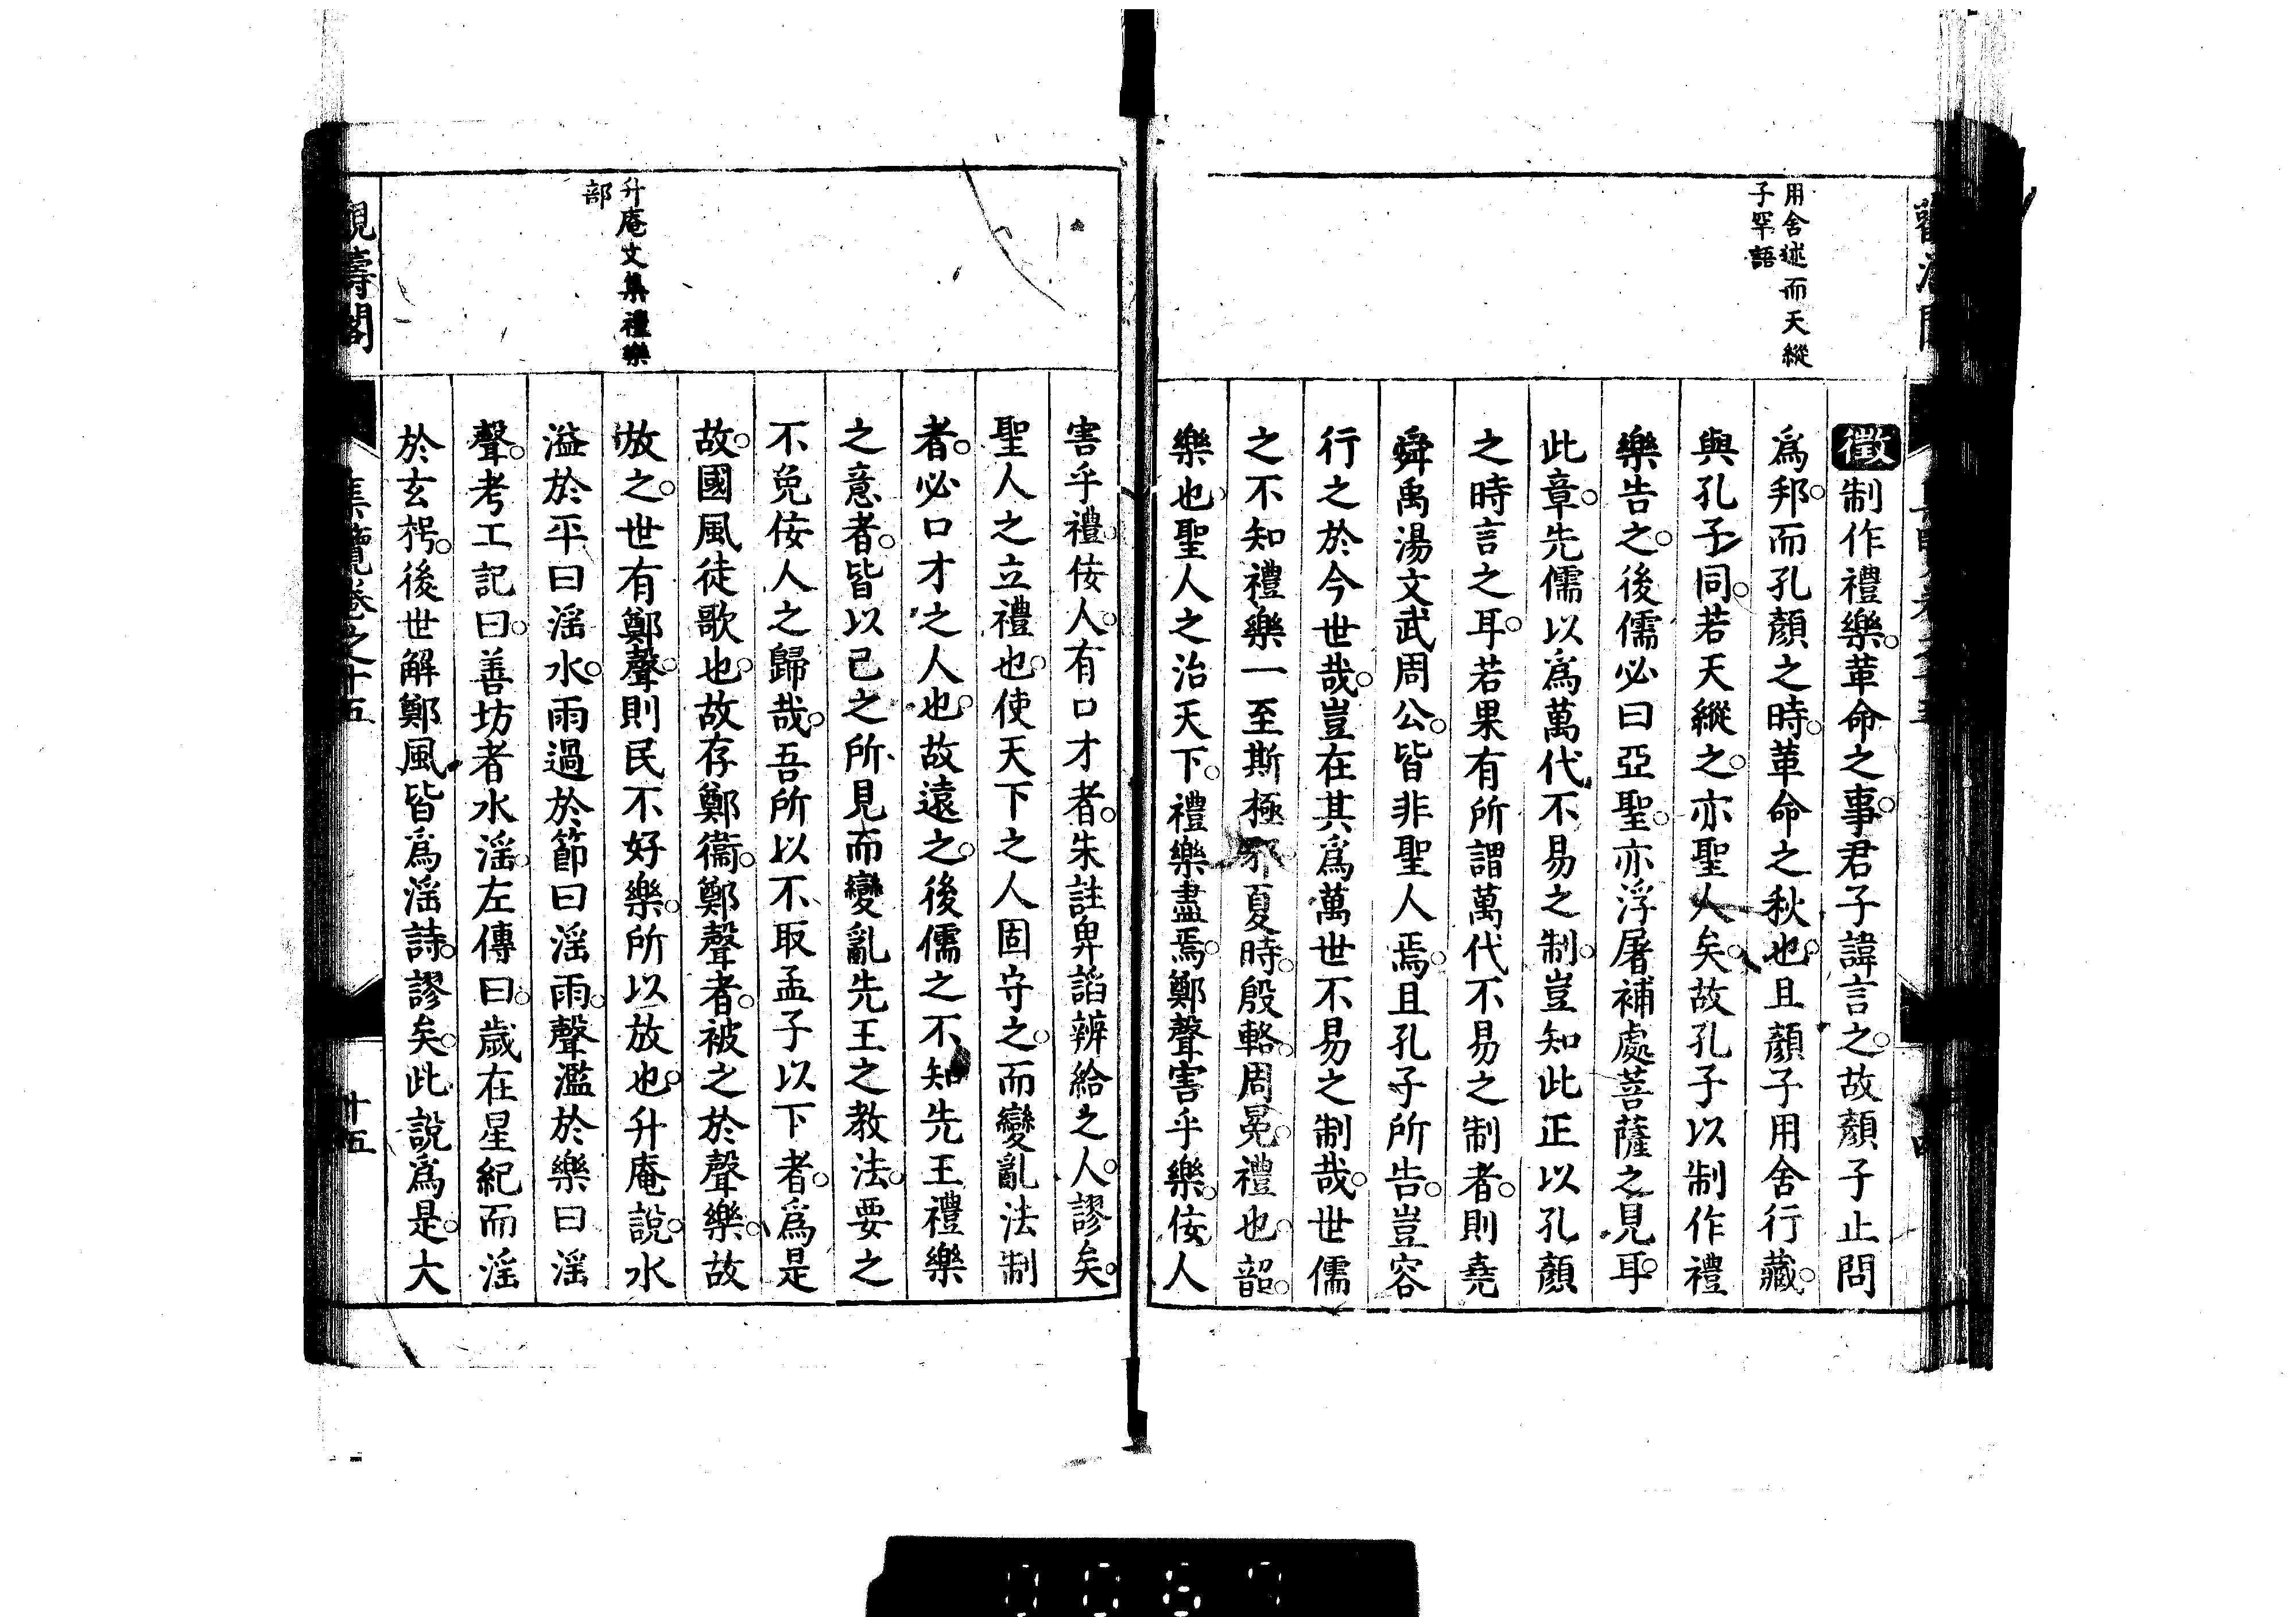 用舍述而天縱
子罕語
徵制作禮樂。革命之事。君子諱言之。故顏子止問
爲邦。而孔顏之時。革命之秋也。且顏子用舍行藏。
與孔子同。若天縱之。亦聖人矣。故孔子以制作禮
樂告之。後儒必曰亞聖。亦浮屠補處菩薩之見耳。
此章。先儒以爲萬代不易之制。豈知此正以孔顏
之時言之耳。若果有所謂萬代不易之制者。則堯
舜禹湯文武周公。皆非聖人焉。且孔子所告。豈容
行之於今世哉。豈在其爲萬世不易之制哉。世儒
之不知禮樂一至斯極邪。夏時。殷輅。周冕。禮也。韶。
樂也。聖人之治天下。禮樂盡焉。鄭聲害乎樂。佞人
升庵文集禮樂
部
害乎禮。佞人。有口才者。朱註卑諂辨給之人。謬矣。
聖人之立禮也。使天下之人固守之。而變亂法制
者。必口才之人也。故遠之。後儒之不知先王禮樂
之意者。皆以己之所見而變亂先王之教法。要之
不免佞人之歸哉。吾所以不取孟子以下者。爲是
故。國風徒歌也。故存鄭衞。鄭聲者。被之於聲樂。故
放之。世有鄭聲。則民不好樂。所以放也。升庵說。水
溢於平曰淫水。雨過於節曰淫雨。聲濫於樂曰淫
聲。考工記曰。善坊者水淫。左傳曰。歲在星紀而淫
於玄枵。後世解鄭風皆爲淫詩。謬矣。此說爲是。大
觀濤閣
集覽卷之十五
十五